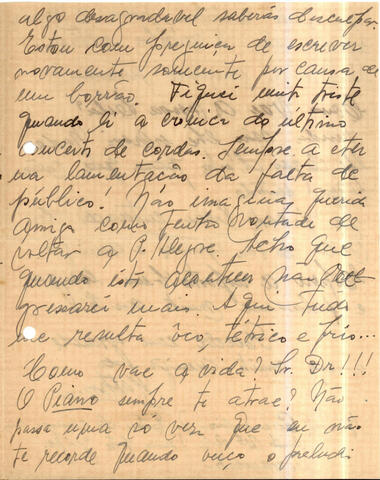 algo desagradavel saberás desculpar.
Estou com preguiça de escrever
novamente somente por causa de
um borrão. Fiquei muito triste
quando li a crônica do último
concerto de cordas. Sempre a eter
na lamentação da falta de
público. Não imaginas, querida
amiga como tenho vontade de
voltar a P. Alegre. Acho que
quando isto acontecer não
pisarei mais. Aqui tudo
me resulta ôco, tétrico e frio...
Como vae a vida? Sr. Dr!!!
O Piano sempre te atrae? Não
passa uma só vez que eu não
te recorde quando ouço o preludi